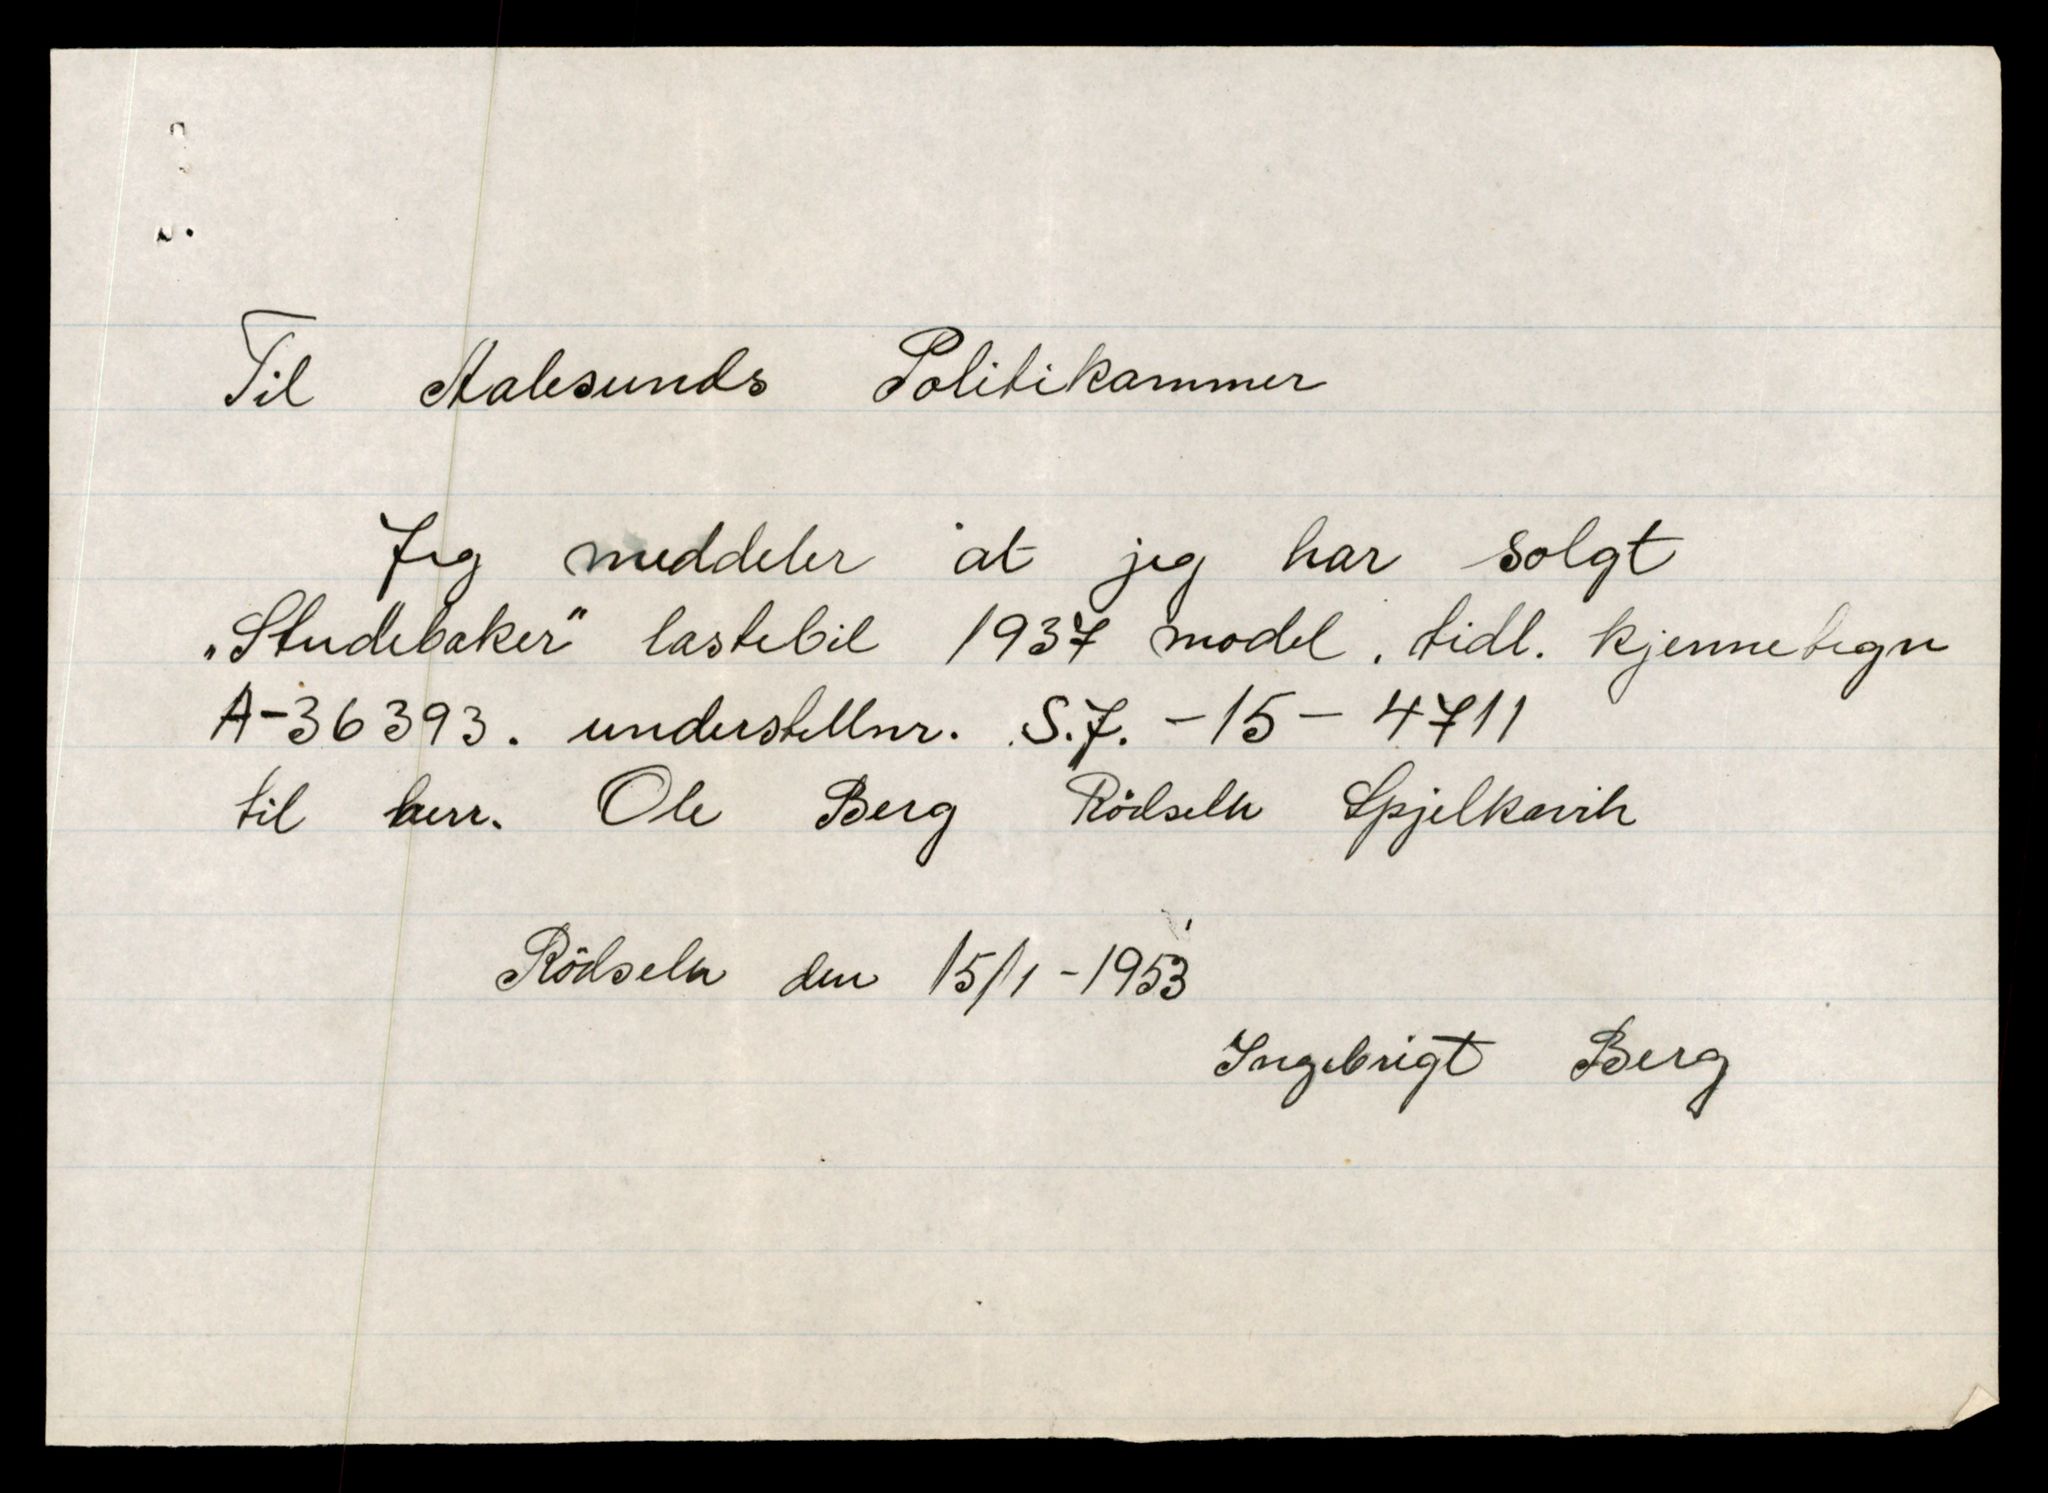 Til Aalesunds Politikammer
Jeg meddeler at jeg har solgt
„Studebaker" lastebil 1937 model. tidl. kjennetegn
A-36393. understellnr. S.J. -15- 4711
til herr. Ole Berg Rödseth Spjelkavik
Rödseth den 15/1-1953
Ingebrigt Berg